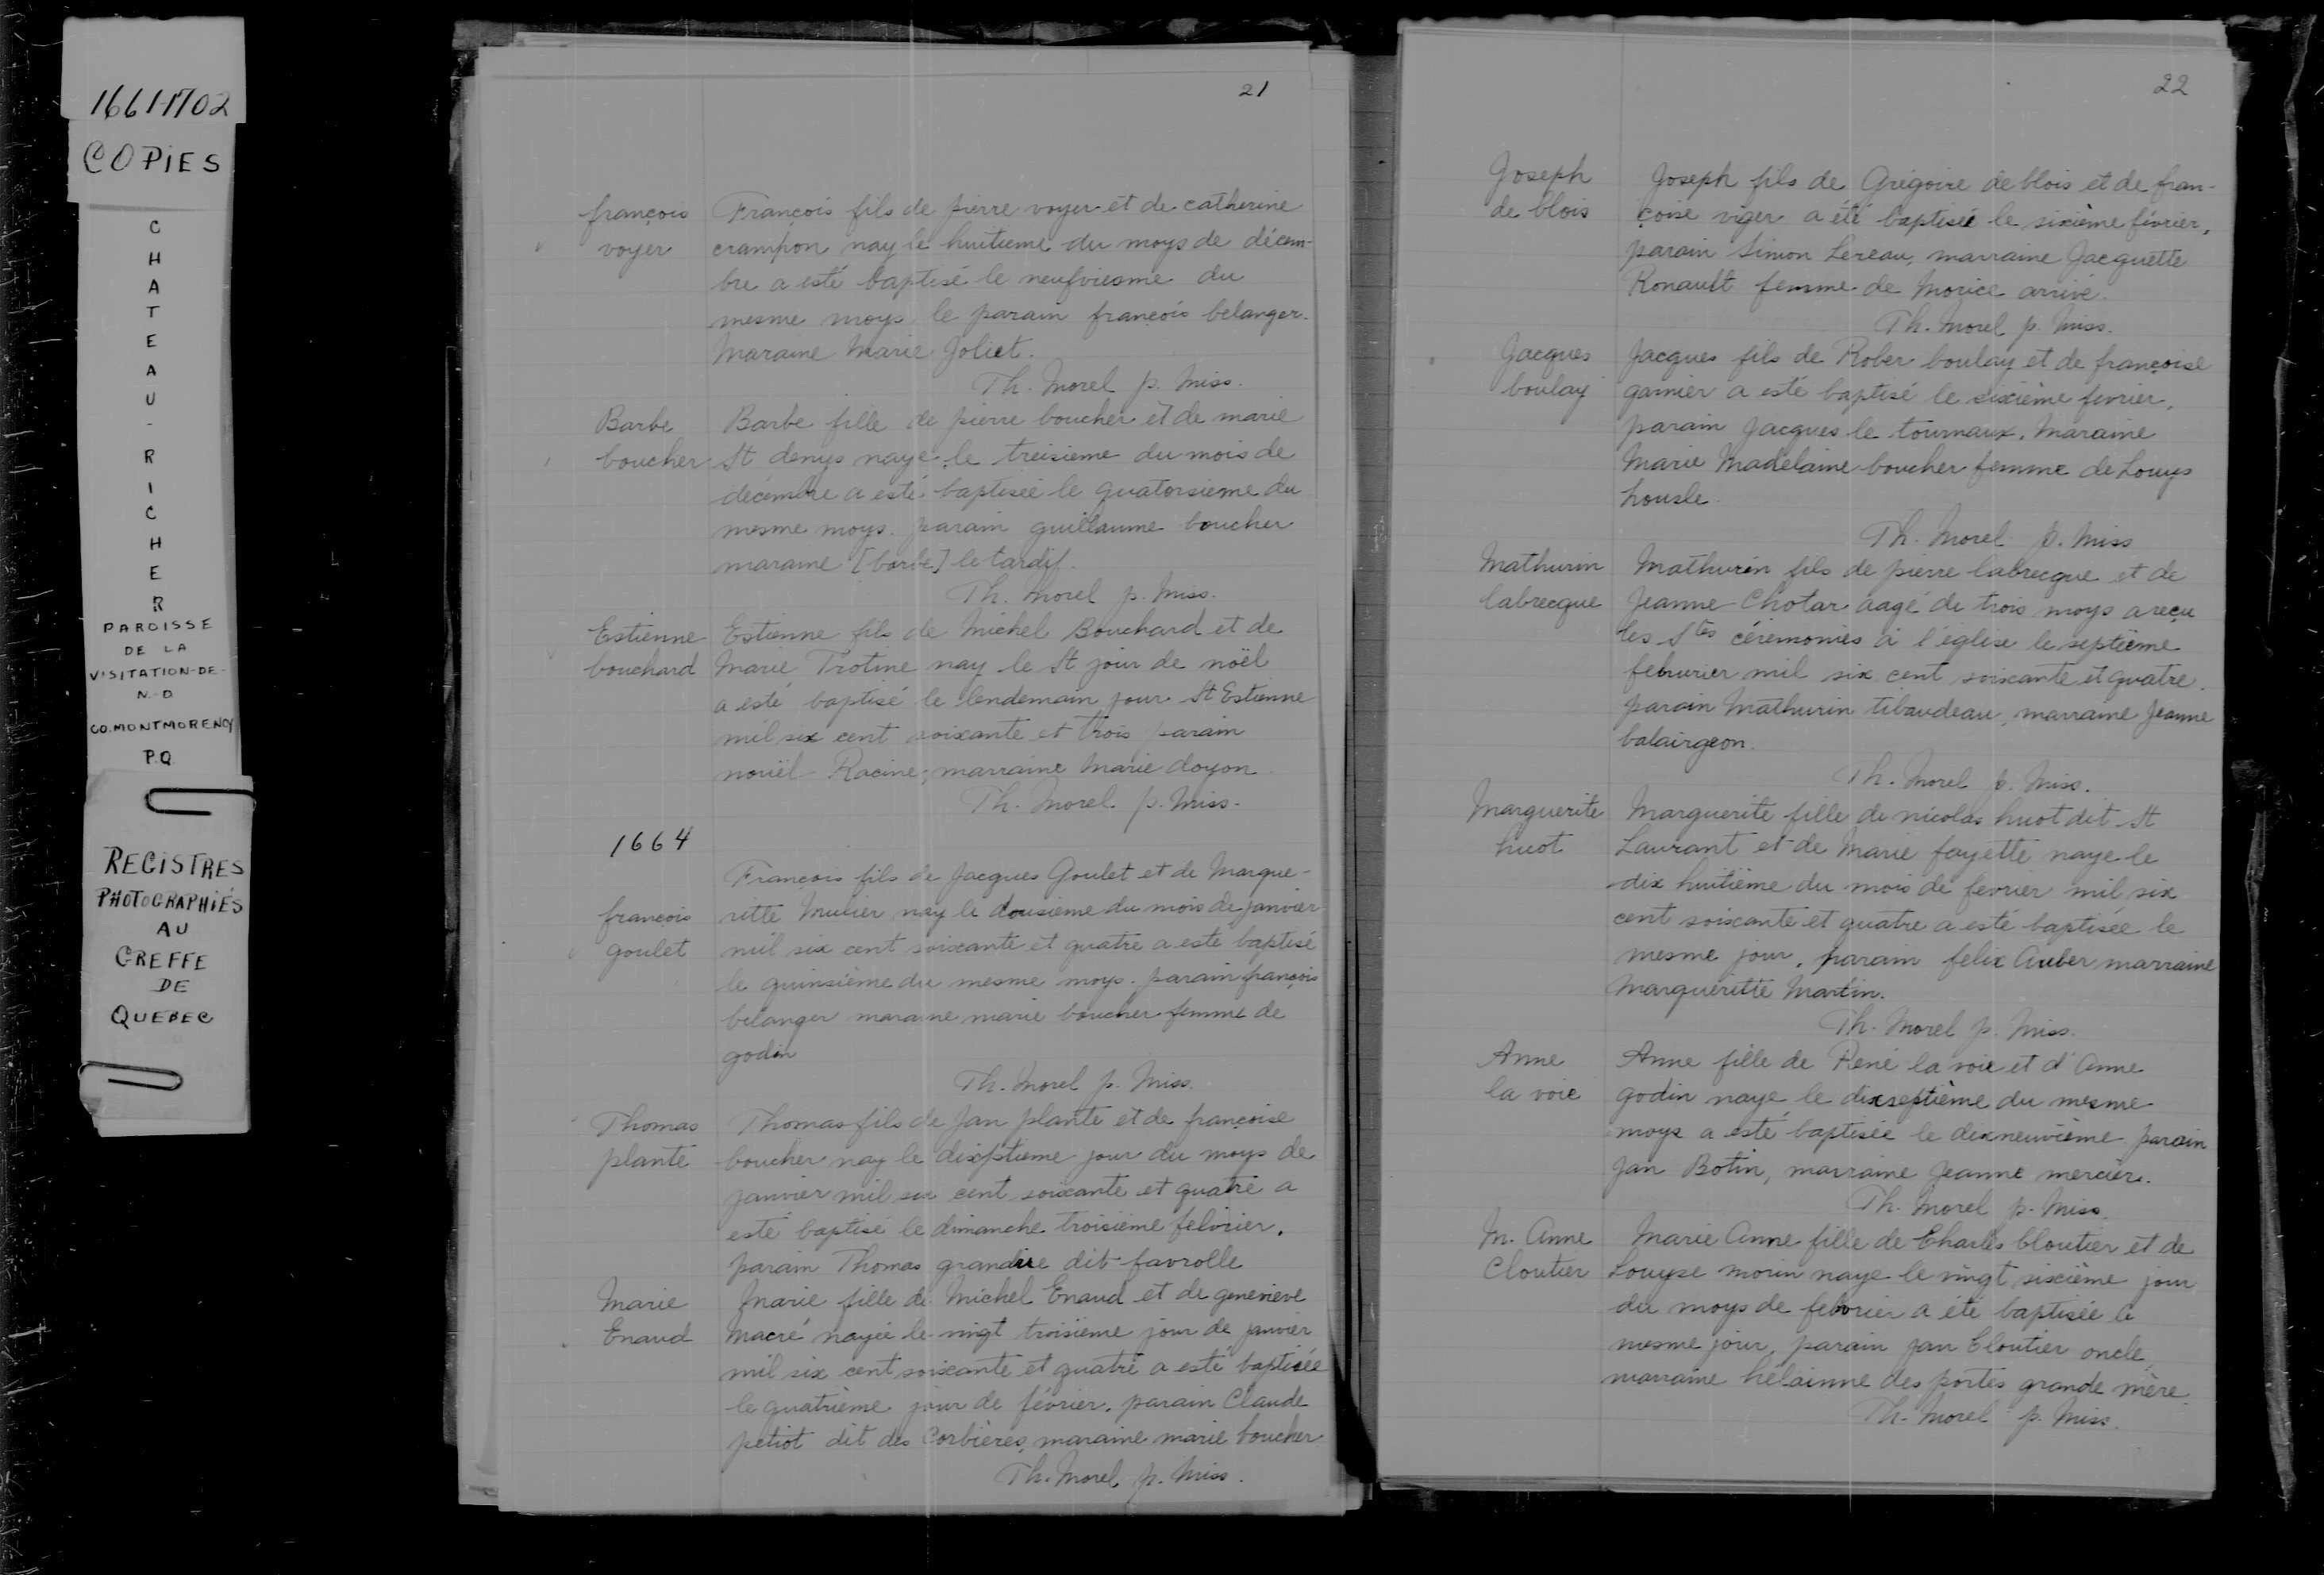 1661-1702
COPIES
CHATEAU-RICHER
PAROISSE
DE LA
VISITATION-DE-
N-D
CO. MONTMORENCY
P.Q.
REGISTRES
PHOTOGRAPHIÉS
AU
GREFFE
DE
QUEBEC
21
françois voyer
François fils de pierre voyer et de catherine
crampon nay le huitieme du moys de décem-
bre a esté baptisé le neufviesme du
mesme moys le parain françois belanger.
Maraine Marie Joliet.
Th. Morel p. Miss.
Barbe boucher
Barbe fille de pierre boucher et de marie
St denys naye le treisieme du mois de
décembre a esté baptisée le quatorsieme du
mesme moys. parain guillaume boucher
maraine [barbe] le tardif.
Th. Morel p. Miss.
Estienne bouchard
Estienne fils de Michel Bouchard et de
Marie Trotine nay le St jour de noël
a esté baptisé le lendemain jour St Estienne
mil six cent soixante et trois parain
nouël Racine, marraine Marie doyon
Th. Morel p. Miss.
1664
françois goulet
François fils de Jacques Goulet et de Margue-
ritte Mulier nay le dousieme du mois de janvier
mil six cent soixante et quatre a esté baptisé
le quinsième du mesme moys. parain françois
belanger maraine marie boucher femme de
godin
Th. Morel p. Miss.
Thomas plante
Thomas fils de Jan plante et de françoise
boucher nay le dixsptieme jour du moys de
janvier mil six cent soixante et quatre a
esté baptisé le dimanche troisième febvrier.
parain Thomas grandire dit favrolle
Marie Enaud
Marie fille de Michel Enaud et de genevieve
Macré nayée le vingt troisième jour de janvier
mil six cent soixante et quatre a esté baptisée
le quatrième jour de février. parain Claude
petiot dit des Corbières, maraine marie boucher
Th. Morel p. Miss.
22
Joseph de blois
Joseph fils de Grégoire de blois et de fran-
çoise viger a été baptisée le sixième février,
parain Simon Lereau, marraine Jacquette
Ronault femme de Morice arrivé.
Th. Morel p. Miss.
Jacques boulay
Jacques fils de Rober boulay et de françoise
garnier a esté baptisé le sixième fevrier,
parain Jacques le tournaux. Maraine
Marie Madelaine boucher femme de Louys
housle
Th. Morel p. Miss
Mathurin labrecque
Mathurin fils de pierre labrecque et de
Jeanne Chotar aagé de trois moys a reçu
les Stes cérémonies à l'église le septième
februrier mil six cent soixante et quatre.
parain Mathurin tibaudeau, marraine Jeanne
balairgeon.
Th. Morel p. Miss.
Marguerite huot
Marguerite fille de nicolas huot dit St
Laurant et de Marie fayette naye le
dix huitième du mois de fevrier mil six
cent soixante et quatre a esté baptisée le
mesme jour, parain felix Auber marraine
Marguerette Martin.
Th. Morel p. Miss.
Anne la voie
Anne fille de René la voie et d'Anne
godin nayé le dixseptième du mesme
moys a esté baptisée le dixneuvième parain
Jan Botin, marraine Jeanne mercier.
Th. Morel p. Miss.
M. Anne Cloutier
Marie Anne fille de Charles Cloutier et de
Louyse morin naye le vingt sixième jour
du moys de febvrier a été baptisée le
mesme jour, parain jan Cloutier oncle,
marraine hélainne des portes grande mère.
Th. Morel p. Miss.